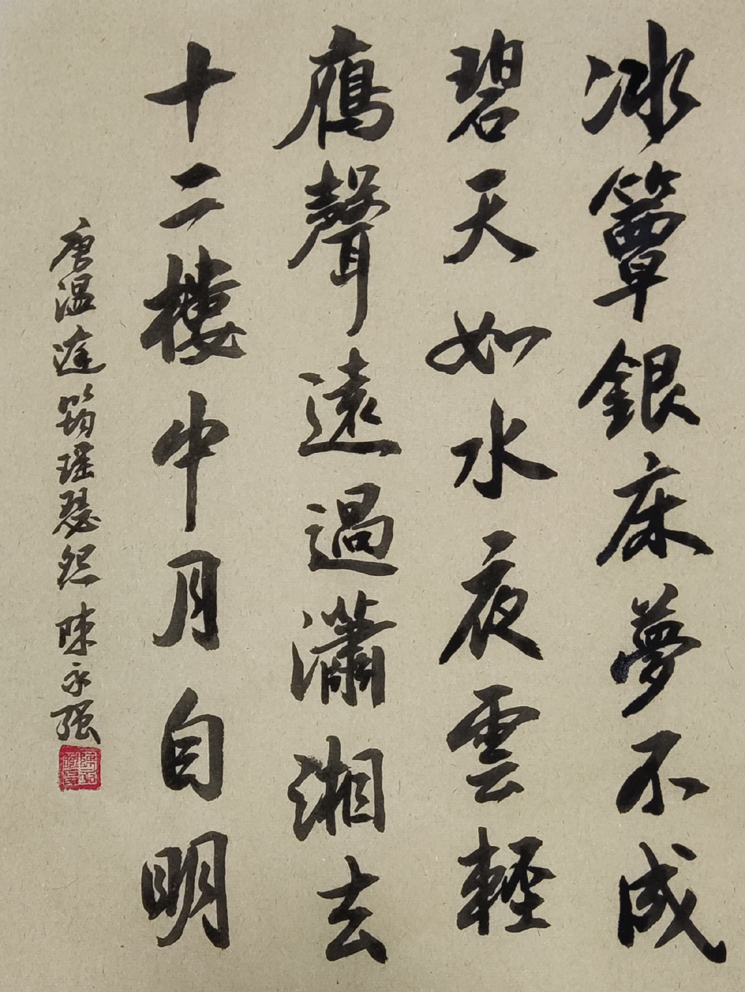 冰簟銀床夢不成
碧天如水夜雲輕
鴈聲遠過瀟湘去
十二樓中月自明
唐温庭筠瑶瑟怨 陳永强